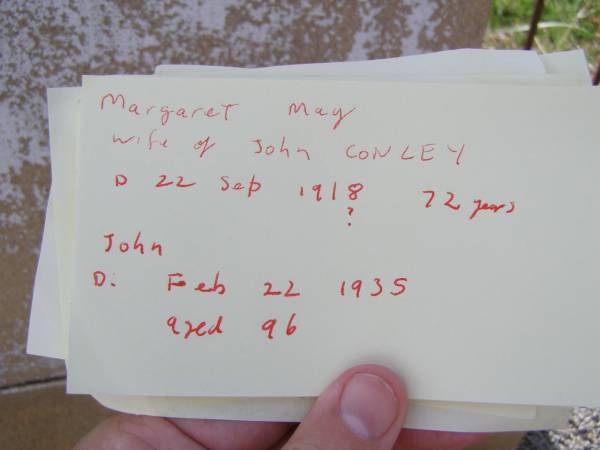 Margaret May
wife of John CONLEY
D 22 Sep 1918 72 years
?
John
D: Feb 22 1935
aged 96